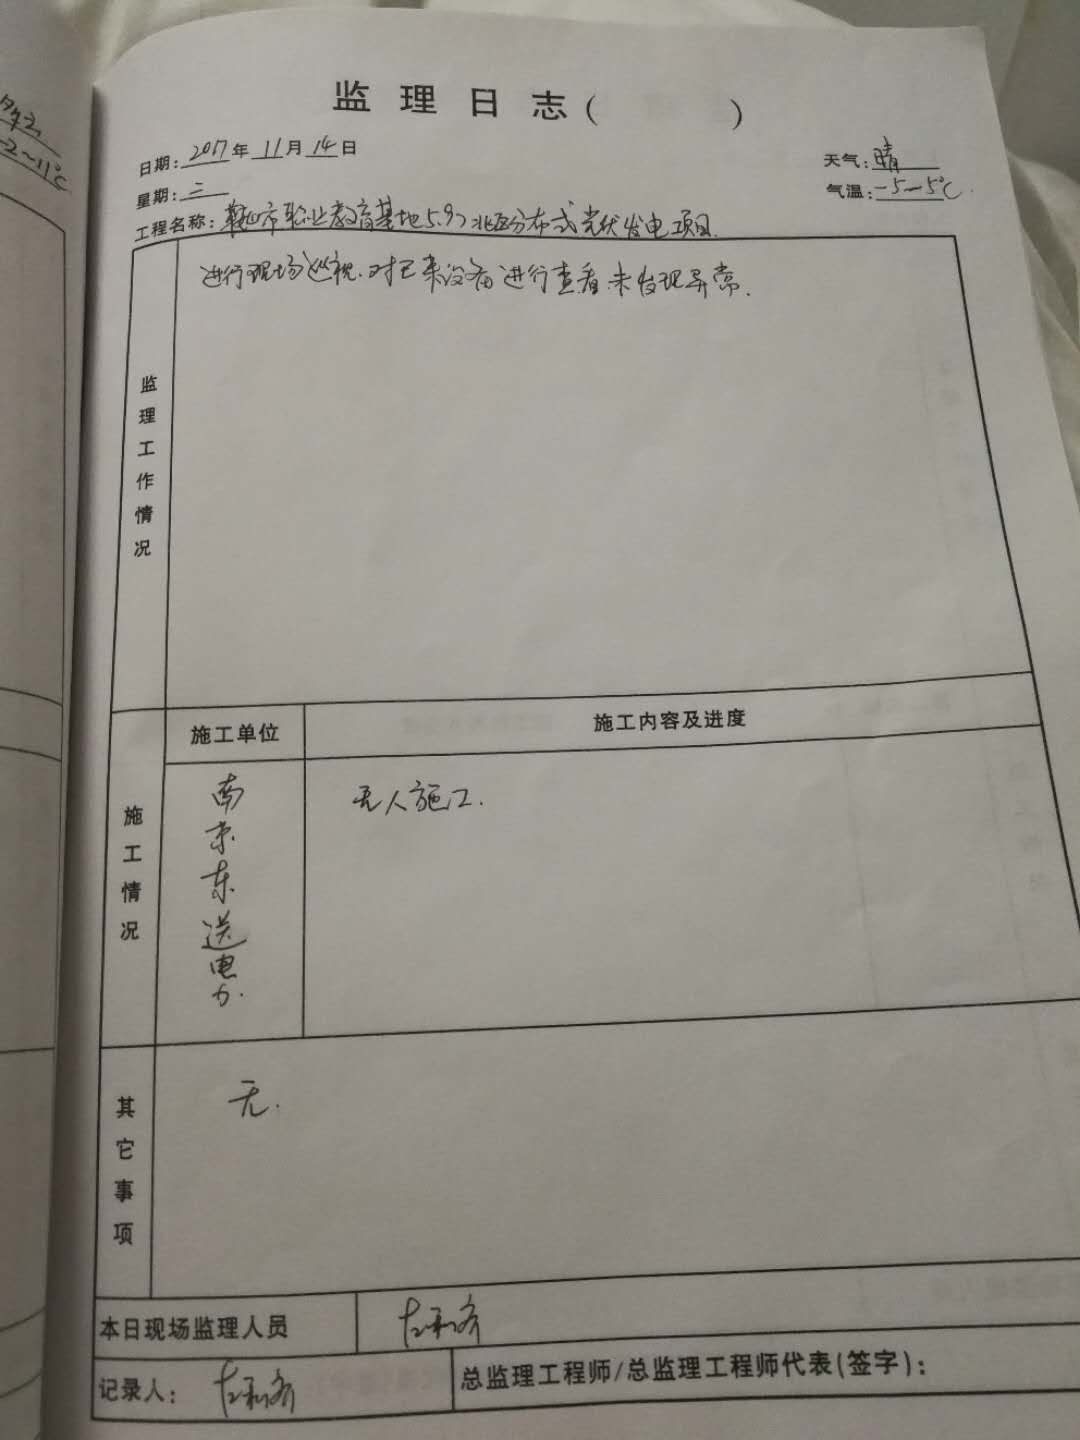 监理日志( )
日期:2017年11月14日
天气:晴
星期:二
气温:-5~5℃
工程名称:鞍山市职业教育基地5.97北区分布式光伏发电项目.
监理工作情况
进行现场巡视.对已来设备进行查看.未发现异常.
施工情况
施工单位
施工内容及进度
南京东送电力.
无人施工.
其它事项
无.
本日现场监理人员
记录人:
总监理工程师/总监理工程师代表(签字):
-2~11℃